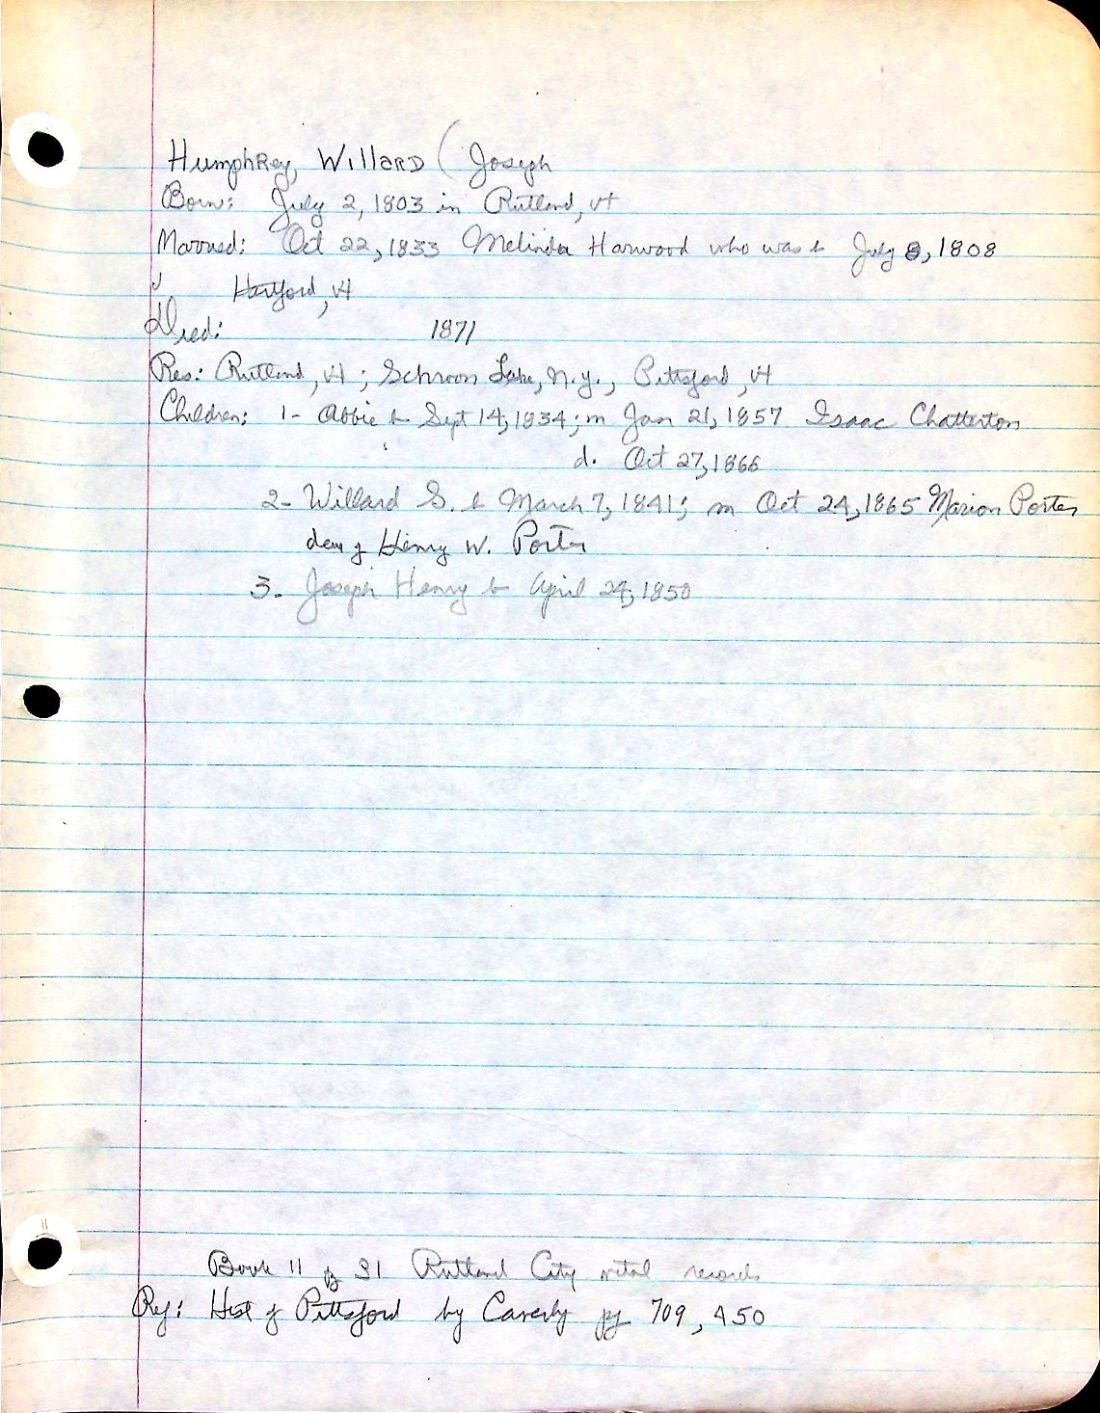 Humphrey, Willard (Joseph
Born: July 2, 1803 in Rutland, Vt
Married: Oct 22, 1833 Melinda Harwood who was b July 8, 1808
Hartford, Vt
Died: 1871
Res: Rutland, Vt; Schroon Lake, N.Y., Pittsford, Vt
Children: 1- Abbie b Sept 14, 1834; m Jan 21, 1857 Isaac Chatterton
d. Oct 27, 1866
2- Willard S. b March 7, 1841; m Oct 24, 1865 Marion Porter
dau of Henry W. Porter
3- Joseph Henry b April 24, 1850
Book 11 pg 31 Rutland City vital records
Ref: Hist of Pittsford by Caverly pg 709, 450